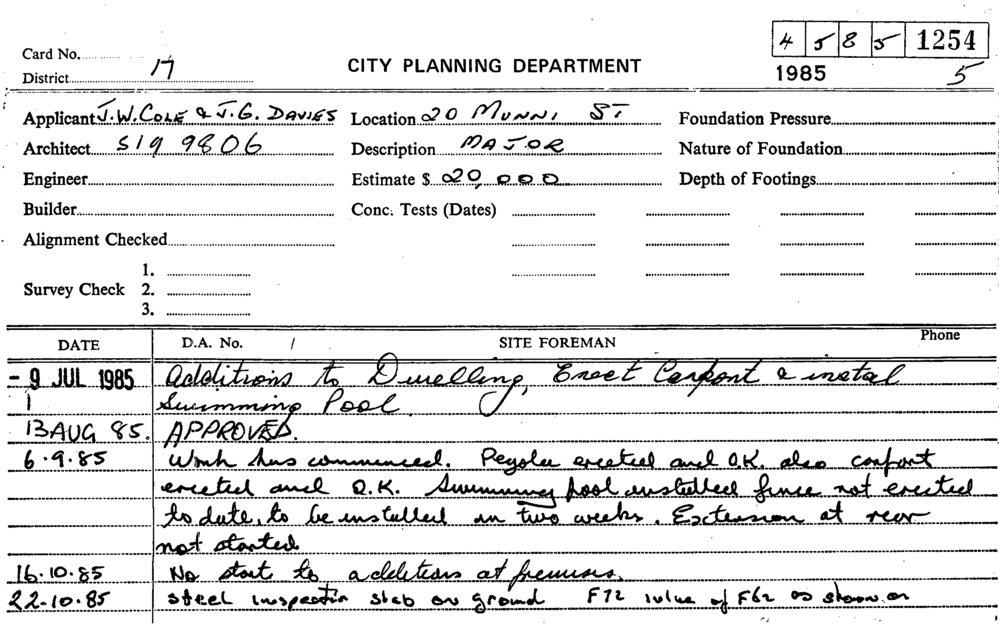 4 5 8 5 1254
Card No.
CITY PLANNING DEPARTMENT
District 17
1985 5
Applicant J.W. COLE & J.G. DAVIES Location 20 MUNNI ST Foundation Pressure
Architect 519 9806 Description MAJOR Nature of Foundation
Engineer Estimate $ 20,000 Depth of Footings
Builder Conc. Tests (Dates)
Alignment Checked
1.
Survey Check 2.
3.
DATE D.A. No. / SITE FOREMAN Phone
- 9 JUL 1985 Additions to Dwelling, Erect Carport & instal
Swimming Pool.
13 AUG 85. APPROVED.
6.9.85 Work has commenced. Pegola erected and O.K. also carport
erected and O.K. Swimming pool installed fence not erected
to date, to be installed in two weeks. Extension at rear
not started.
16.10.85 No start to additions at premises.
22.10.85 Steel inspection slab on ground F72 in lue of F62 as shown on